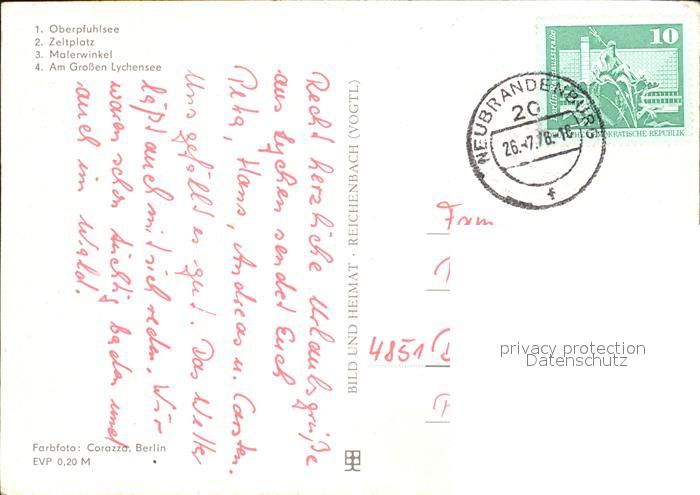 1. Oberpfuhlsee
2. Zeltplatz
3. Malerwinkel
4. Am Großen Lychensee
Recht herzliche Urlaubsgrüße
aus Lychen sendet Euch
Petra, Hans, Andreas u. Carsten.
Uns gefällt es gut. Das Wetter
läßt auch mit sich reden. Wir
waren schon tüchtig baden und
auch im Wald.
BILD UND HEIMAT · REICHENBACH (VOGTL)
10
DEMOKRATISCHE REPUBLIK
NEUBRANDENBURG
20
26.-7.76.-16
f
4851
privacy protection
Datenschutz
Farbfoto: Corazza, Berlin
EVP 0,20 M